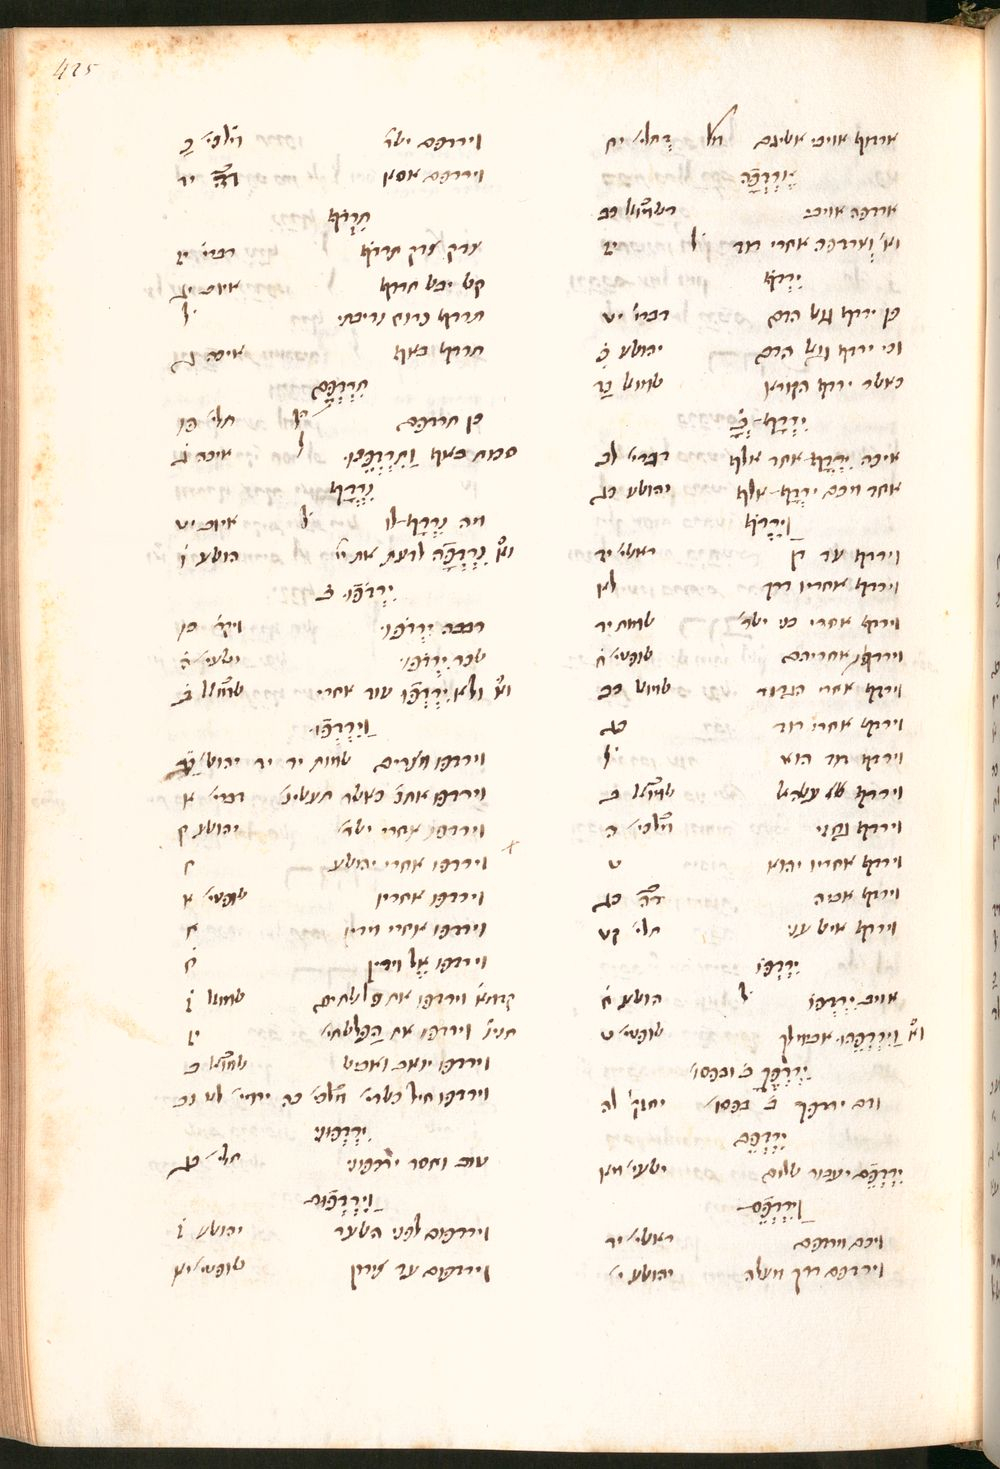 425
ארדוף אויבי אשיגם תלי׳ יח
אֶרְדְּפָה
ארדפה אויבי דשמואל כב
וא׳ וְאֶרְדְּפָה אחרי דוד יז
יִרְדּוֹף
פן ירדף גאל הדם דברי׳ יט
וכי ירדף גאל הדם יהושע כ
כאשר ירדף הקורא שמואל כו
יִרְדׇּף־
איכה יִרְדׇּף אחד אלף דברי׳ לב
אחד מכם ירדף אלף יהושע כג
וַיִּרְדּוֹף
וירדף עד דן ראשי׳ יד
וירדף אחריו דרך לא
וירדף אחרי בני ישר׳ שמות יד
וירדפו אחריהם שופטי׳ ח
וירדף אחרי הגדוד שמואל כב
וירדף אחרי דוד כג
וירדף דוד הוא ל
שמואל ב
וירדף גחזי מלכי׳ ה
וירדף אחריו יהוא ט
וירדף אביה דה כג
וירדף איש עני תלי׳ קט
יִרְדְּפוֹ
אויב יִרְדְּפוֹ הושע ח
וא׳ וַיִּרְדְּפֵהוּ אבימלך שופטי׳ ט
יִרְדְּפֶךָ ב׳ ובפסו׳
ודם ירדפך ב׳ בפסו׳ יחזק׳ לה
יִרְדְּפֵם
יִרְדְּפֵם יעבור שלום ישעי׳ מא
וַיִּרְדְּפֵם
ויכם וירדפם ראשי׳ יד
וירדפם דרך מעלה יהושע י׳
וירדפם ישר׳ מלכי׳ כ
וירדפם אסא דה יד
תִּרְדּוֹף
צדק צדק תרדוף דברי׳ יו
קש יבש תרדף איוב יג
תרדף כרוח נדיבתי ל
תרדף באף איכה ג
תִרְדְּפֵם
כן תרדפם תלי׳ פג
סכות באף וַתִּרְדְּפֵנוּ איכה ג
נִרְדׇּף
מה נִרְדׇּף־לו איוב יט
וא׳ נִרְדְּפָה לדעת את יי׳ הושע ו
יִרְדְּפוּ ב
רבבה ירדפו ויקר׳ כו
שכר ירדפו ישעי׳ ה
וא׳ ולא יִרְדְּפוּ עוד אחרי שמואל ב
וַיִּרְדְּפוּ
וירדפו מצרים שמות יד יד יהושע כד
וירדפו אתכ׳ כאשר תעשינ׳ דברי׳ א
וירדפו אחרי ישר׳ יהושע ח
וירדפו אחרי יהושע ח
וירדפו אחריו שופטי׳ א
וירדפו אחרי מדין ח
וירדפו אל מדין ח
קדמא׳ וירדפו את פלשתים שמואל ז
תניי׳ וירדפו את הפלשתי׳ יז
וירדפו יואב ואבישי שמואל ב
וירדפו חיל כשדי׳ מלכי׳ כה ירמי׳ לט נב
יִרְדְּפוּנִי
טוב וחסד ירדפוני תלי׳ כג
וַיִּרְדְּפוּם
וירדפום לפני השער יהושע ז
וירדפום עד צידון שופטי׳ יא